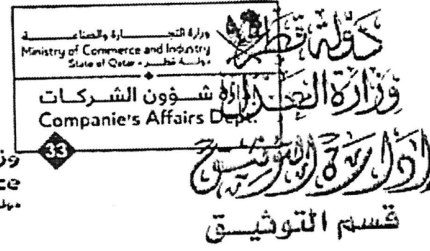 وزارة التجـــــارة والصناعـــة
Ministry of Commerce and Industry
State of Qatar - دولـة قطـر
شـؤون الشـركـات
Companie's Affairs Dept.
33
دولة قطر
وزارة العدل
إدارة التوثيق
قسم التوثيـق